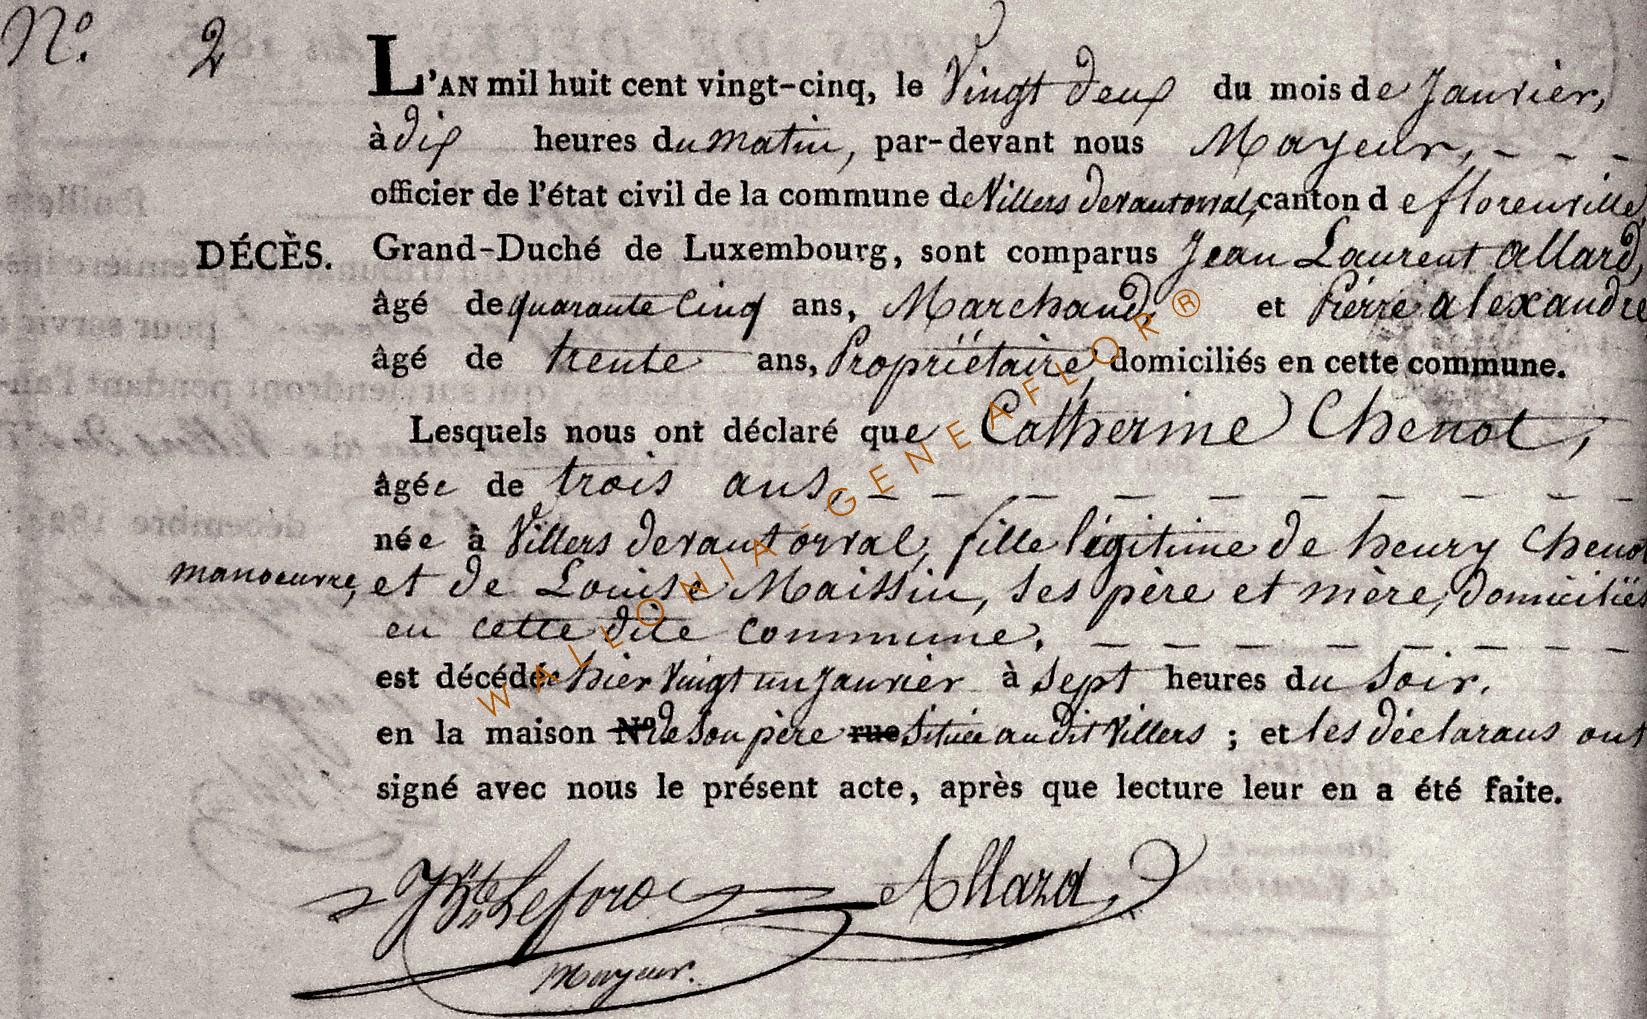 N.º 2
L'AN mil huit cent vingt-cinq, le Vingt deux du mois de Janvier,
à dix heures du matin, par-devant nous Mayeur, - - -
officier de l'état civil de la commune de Villers devant orval, canton de florenville
DÉCÈS. Grand-Duché de Luxembourg, sont comparus Jean Laurent allard,
âgé de quarante cinq ans, Marchand, et Pierre alexandre
âgé de trente ans, Propriétaire, domiciliés en cette commune.
Lesquels nous ont déclaré que Catherine Chenot,
âgée de trois ans, - - - - - - - - -
née à Villers devant orval, fille légitime de henry Chenot
manoeuvre, et de Louise Maissin, ses père et mère, domiciliés
en cette dite commune. - - - - - - -
est décédée hier Vingt un Janvier à Sept heures du Soir.
en la maison N.º de Son père rue Située au dit Villers ; et les déclarans ont
signé avec nous le présent acte, après que lecture leur en a été faite.
Allard
Mayeur.
WALLONIA-GENEAFLOR®